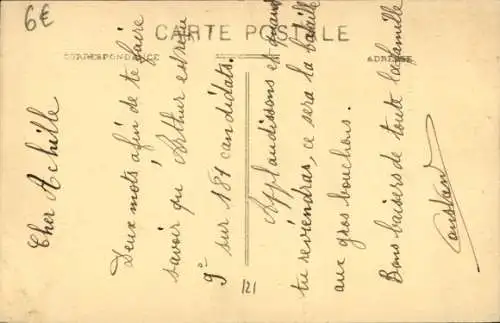 6€
CARTE POSTALE
CORRESPONDANCE
ADRESSE
Cher Achille
Deux mots afin de te faire
savoir qu'Arthur est reçu
9e sur 181 candidats.
Applaudissons et quand
tu reviendras, ce sera la bataille
aux gros bouchons.
Bons baisers de toute la famille
Constant
121